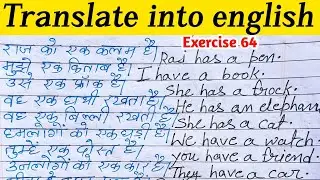 Translate into english
Exercise 64
राज को एक कलम है।
Raj has a pen.
मुझे एक किताब है।
I have a book.
उसे एक फ्रॉक है।
She has a frock.
वह एक हाथी रखता है।
He has an elephant
वह एक बिल्ली रखती है।
She has a cat.
हमलोगों को एक घड़ी है।
We have a watch.
तुम्हें एक दोस्त है।
you have a friend.
उनलोगों को एक कार है।
They have a car.